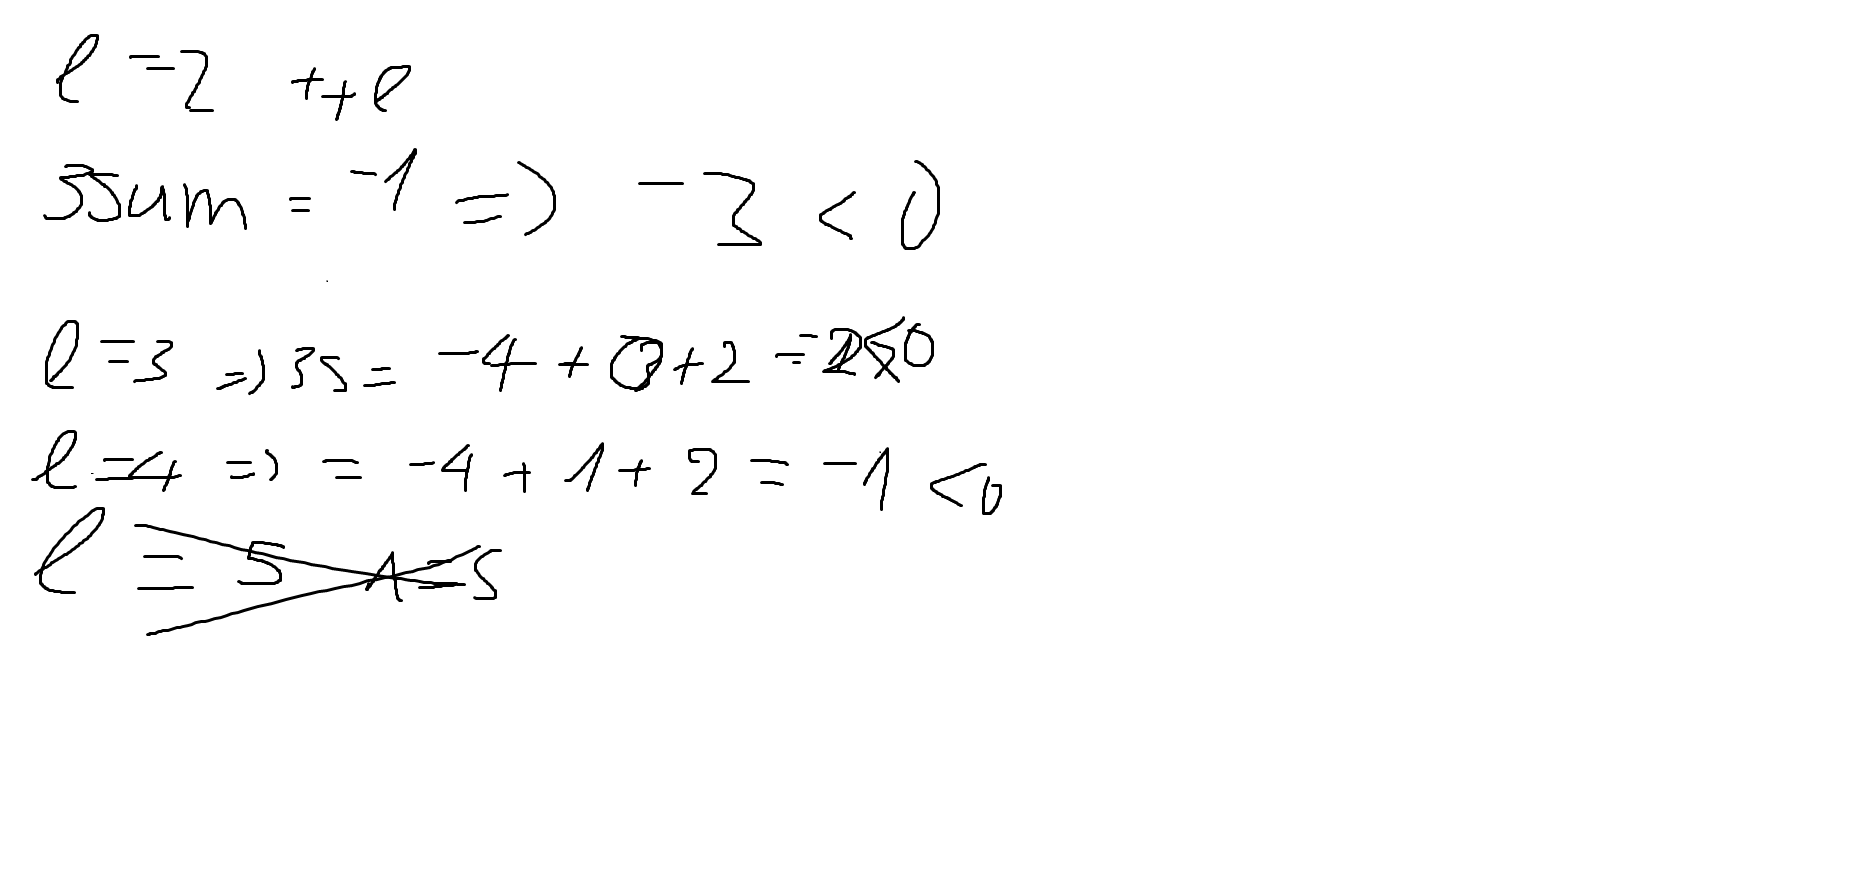 l = 2 ++l
3Sum = -1 => -3 < 0
l = 3 => 3S = -4 + 0 + 2 = -2 < 0
l = 4 => = -4 + 1 + 2 = -1 < 0
l = 5 1 = 5